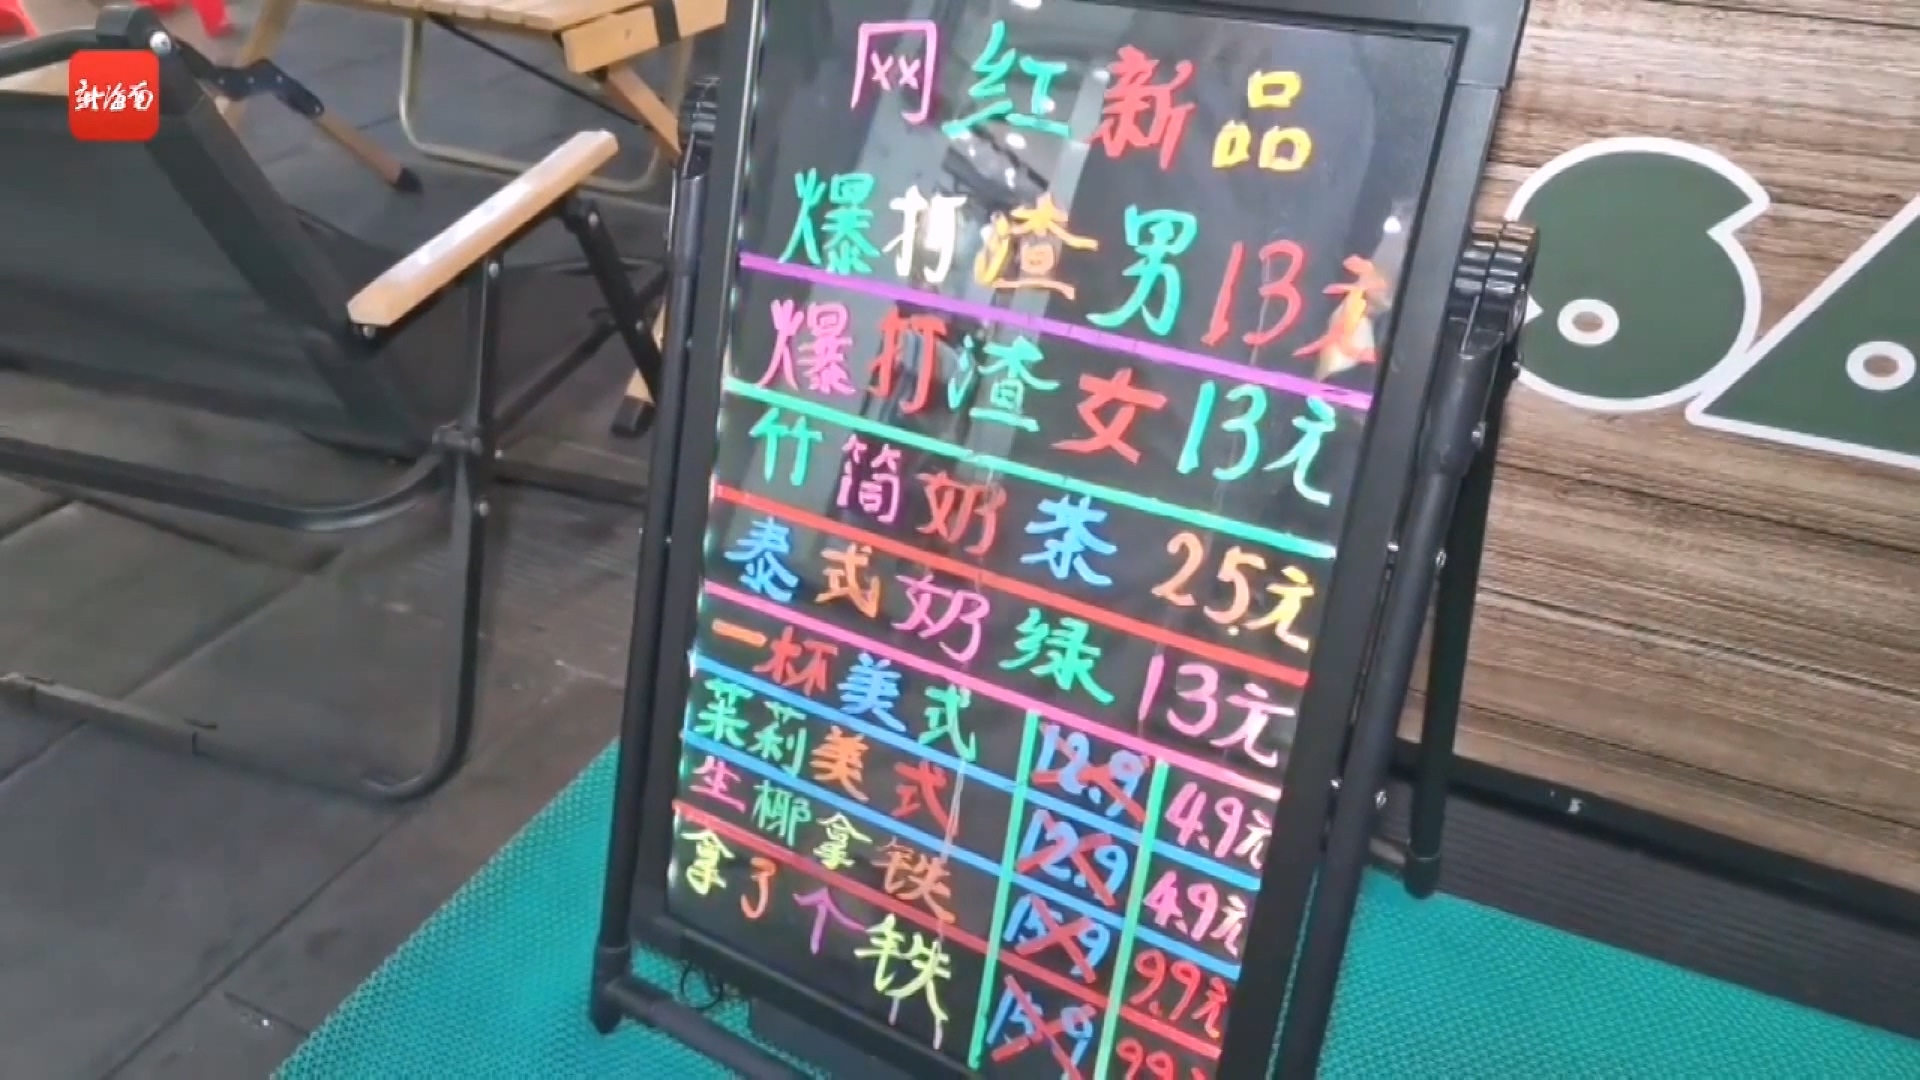 新海南
网红新品
爆打渣男13元
爆打渣女13元
竹筒奶茶 25元
泰式奶绿 13元
一杯美式 12.9 4.9元
茉莉美式 12.9 4.9元
生椰拿铁 15.9 9.9元
拿了个铁 15.9